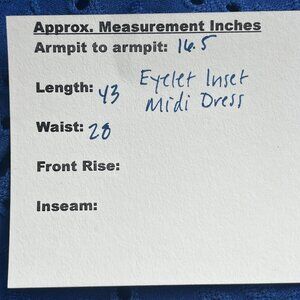 Approx. Measurement Inches
Armpit to armpit: 16.5
Length: 43 Eyelet Inset
Midi Dress
Waist: 28
Front Rise:
Inseam: